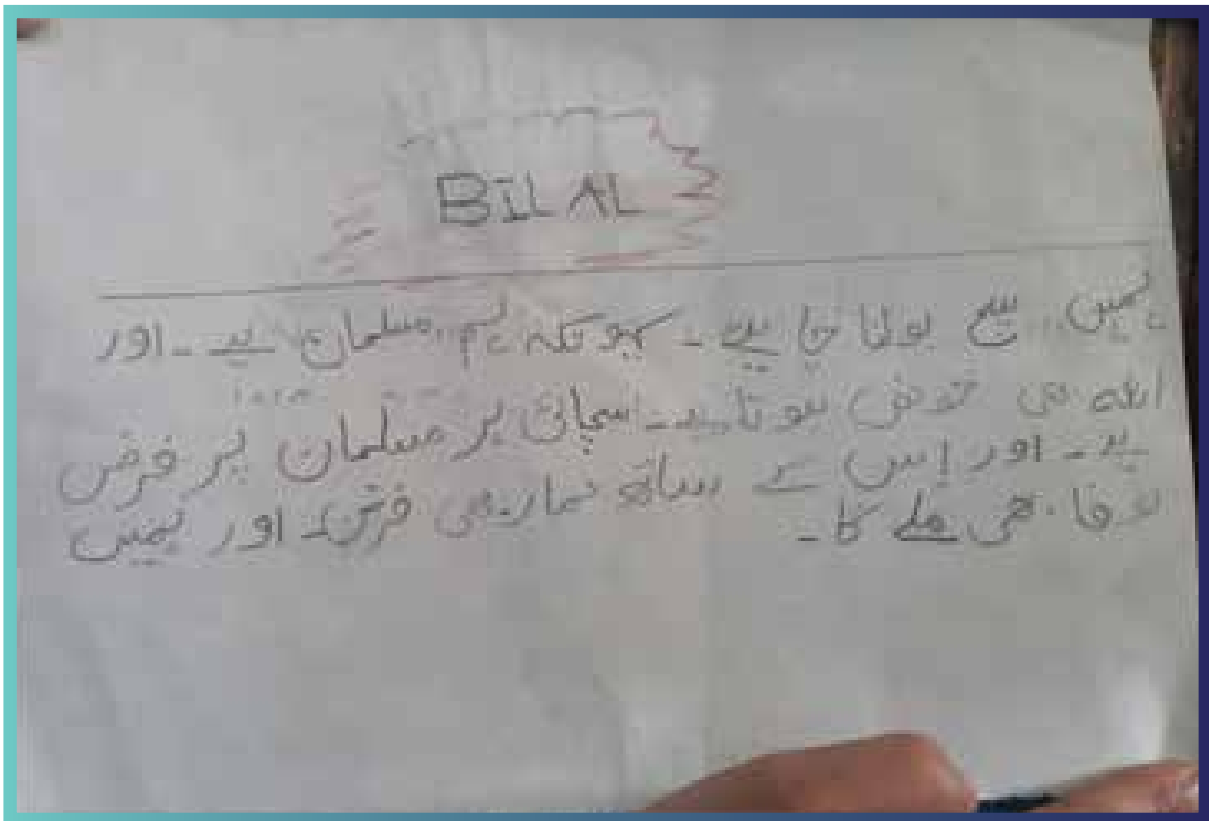 BILAL
ہمیں سچ بولنا چا ہیے۔ کیونکہ ہم مسلمان ہے۔ اور
اللہ بھی خوش ہوتا ہے۔ سچائی ہر مسلمان پر فرض
ہے۔ اور اِس کے ساتھ نماز بھی فرض۔ اور ہمیں
بھی ملے گا۔